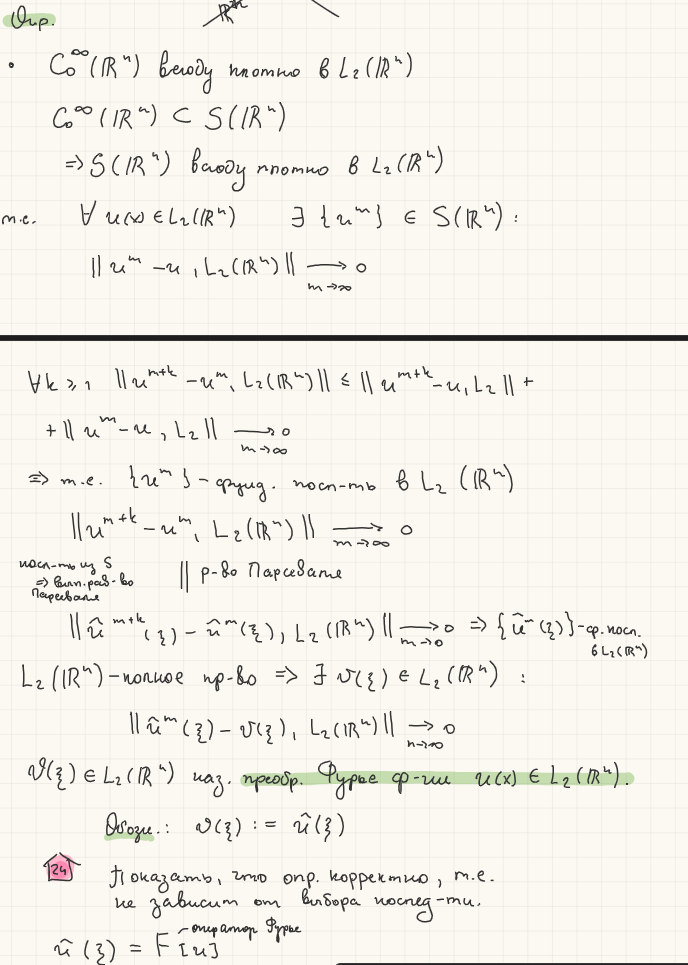 Опр.
• C₀^∞(ℝⁿ) всюду плотно в L₂(ℝⁿ)
C₀^∞(ℝⁿ) ⊂ S(ℝⁿ)
⇒ S(ℝⁿ) всюду плотно в L₂(ℝⁿ)
т.е. ∀ u(x) ∈ L₂(ℝⁿ) ∃ {u^m} ∈ S(ℝⁿ) :
‖u^m − u, L₂(ℝⁿ)‖ ⟶ 0
m→∞
∀k ⩾ 1 ‖u^{m+k} − u^m, L₂(ℝⁿ)‖ ≤ ‖u^{m+k} − u, L₂‖ +
+ ‖u^m − u, L₂‖ ⟶ 0
m→∞
⇒ т.е. {u^m} – фунд. посл-ть в L₂(ℝⁿ)
‖u^{m+k} − u^m, L₂(ℝⁿ)‖ ⟶ 0
m→∞
посл-ть из S
⇒ вып. рав-во
Парсеваля
‖ р-во Парсеваля
‖û^{m+k}(ξ) − û^m(ξ), L₂(ℝⁿ)‖ ⟶ 0 ⇒ {û^m(ξ)} – ф. посл.
m→∞ в L₂(ℝⁿ)
L₂(ℝⁿ) – полное пр-во ⇒ ∃ v(ξ) ∈ L₂(ℝⁿ) :
‖û^m(ξ) − v(ξ), L₂(ℝⁿ)‖ → 0
v(ξ) ∈ L₂(ℝⁿ) наз. преобр. Фурье ф-ии u(x) ∈ L₂(ℝⁿ).
Обозн.: v(ξ) := û(ξ)
24 Показать, что опр. корректно, т.е.
не зависит от выбора послед-ти.
– оператор Фурье
û(ξ) = F[u]